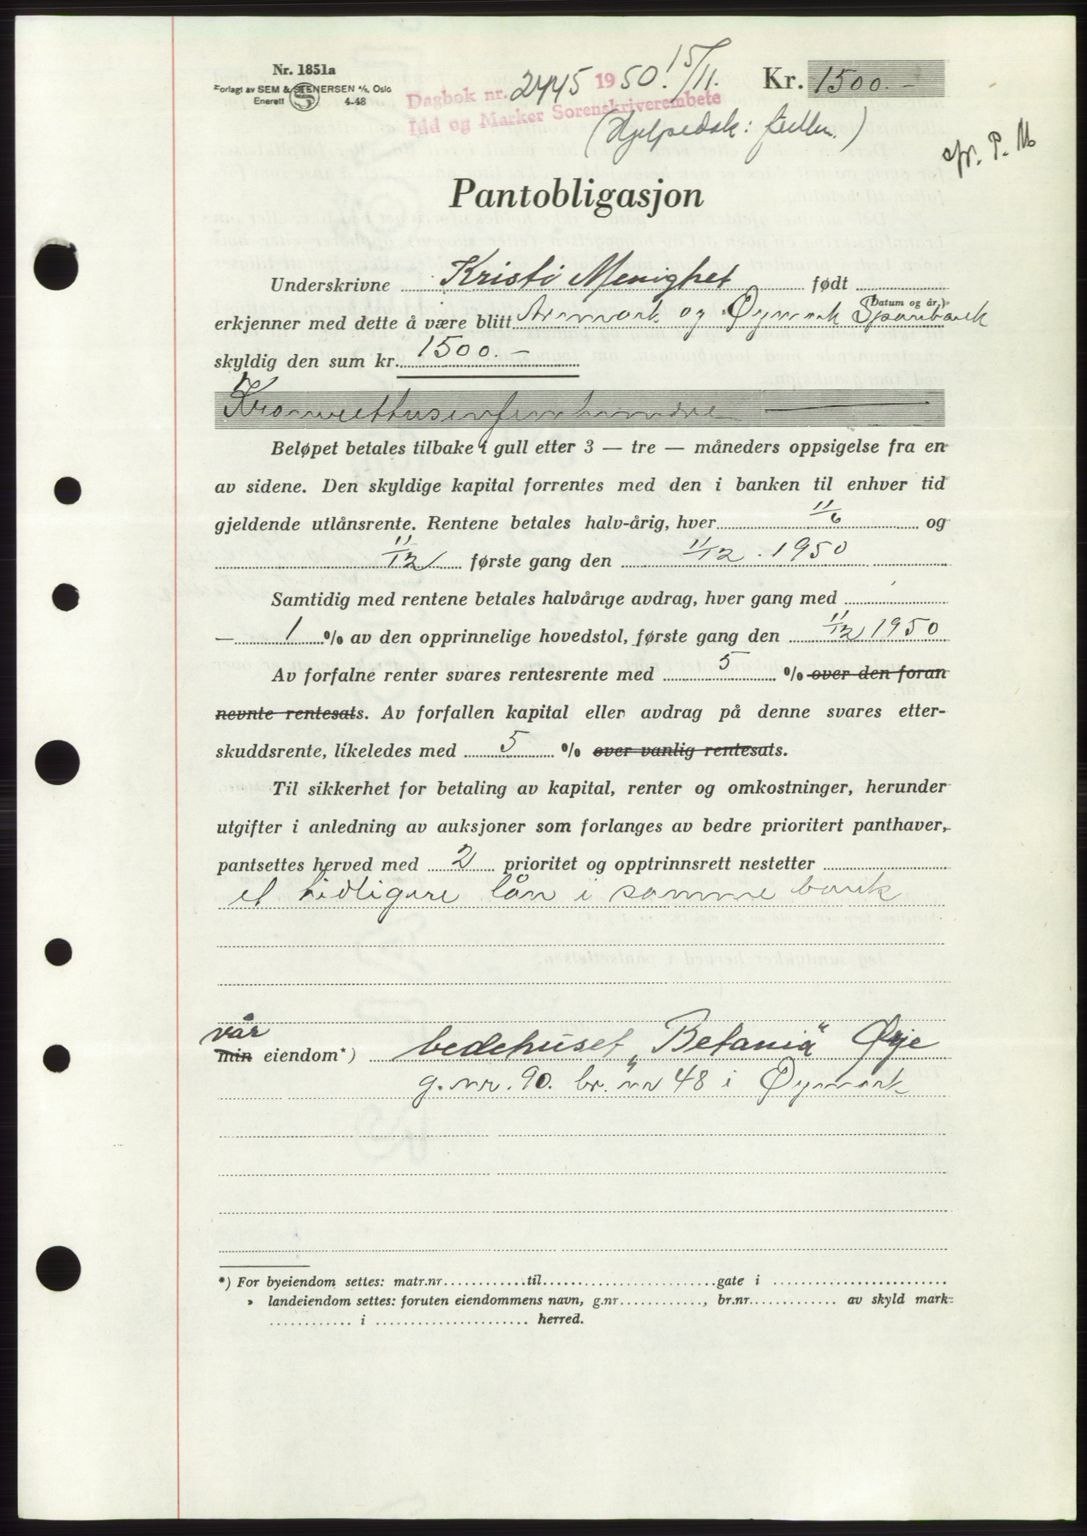 Nr. 1851a
Forlagt av SEM & STENERSEN A/S, Oslo
Enerett 4-48
Dagbok nr. 2445 1950. 15/11.
Idd og Marker Sorenskriverembete
Kr. 1500.-
(Hjelpedok: feller.)
Pantobligasjon
Underskrivne Kristi Menighet født
(Datum og år)
erkjenner med dette å være blitt Aremark og Øymark Sparebank
skyldig den sum kr. 1500.-
Kroneretttusenfemhundre
Beløpet betales tilbake i gull etter 3 — tre — måneders oppsigelse fra en
av sidene. Den skyldige kapital forrentes med den i banken til enhver tid
gjeldende utlånsrente. Rentene betales halv-årig, hver 11/6 og
11/12 første gang den 11/12. 1950
Samtidig med rentene betales halvårige avdrag, hver gang med
— 1 % av den opprinnelige hovedstol, første gang den 11/12 1950
Av forfalne renter svares rentesrente med 5 % over den foran
nevnte rentesats. Av forfallen kapital eller avdrag på denne svares etter-
skuddsrente, likeledes med 5 % over vanlig rentesats.
Til sikkerhet for betaling av kapital, renter og omkostninger, herunder
utgifter i anledning av auksjoner som forlanges av bedre prioritert panthaver,
pantsettes herved med 2 prioritet og opptrinnsrett nestetter
et tidligere lån i samme bank
vår
min eiendom*) bedehuset "Betania" Ørje
g. nr. 90. br. nr 48 i Øymark
*) For byeiendom settes: matr.nr. til gate i
» landeiendom settes: foruten eiendommens navn, g.nr. , br.nr. av skyld mark
i herred.